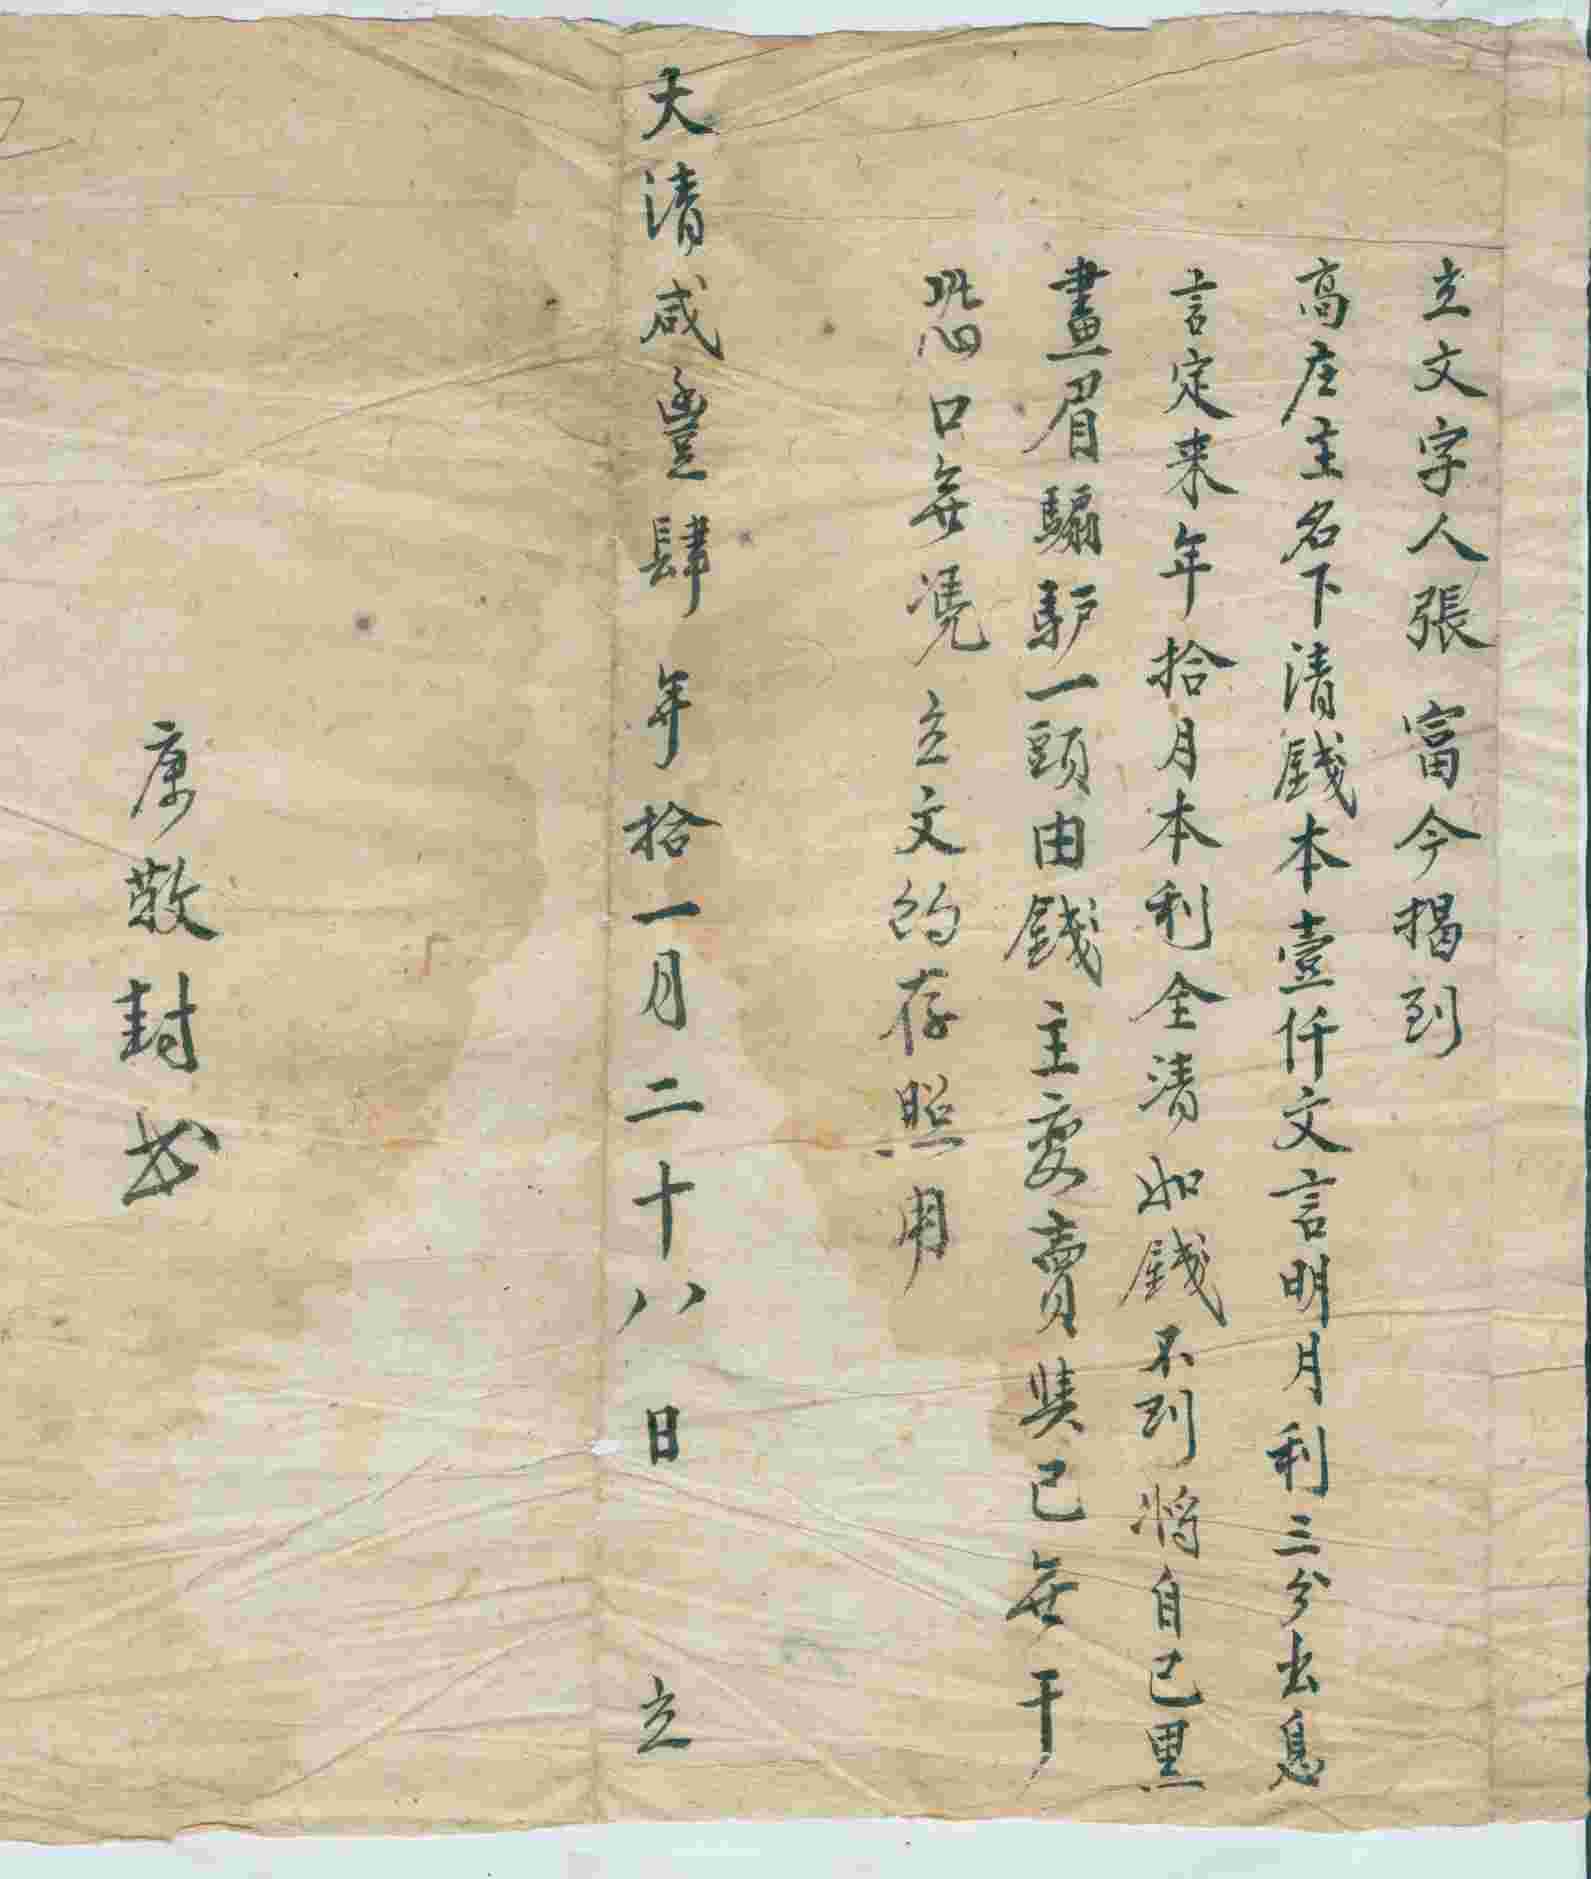 立文字人張富今揭到
高庄主名下清錢本壹仟文言明月利三分出息
言定来年拾月本利全清如錢不到將自己黑
畫眉騸驴一頭由錢主变賣與己無干
恐口無凭立文约存照用
大清咸豐肆年拾一月二十八日立
康敬封书